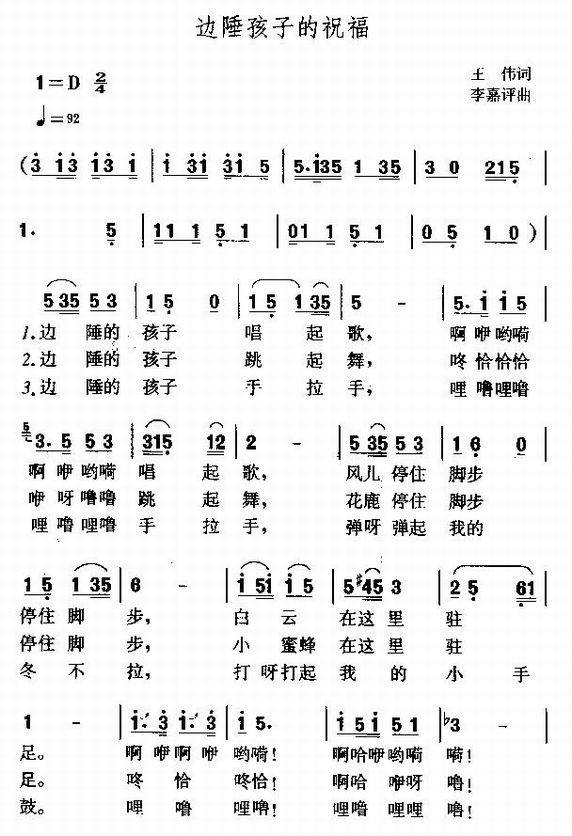 边陲孩子的祝福
1=D 2/4
王 伟词
李嘉评曲
♩=92
(3 13 13 1 | 1 31 31 5 | 5·135 1 35 | 3 0 215 |
1. 5 | 11 1 5 1 | 01 1 5 1 | 0 5 1 0 ) |
5 35 5 3 | 1 5 0 | 1 5 1 35 | 5 - | 5. 1 1 5 |
1.边 陲的 孩子 唱 起 歌, 啊 咿哟嗬
2.边 陲的 孩子 跳 起 舞, 咚 恰恰恰
3.边 陲的 孩子 手 拉 手, 哩 噜哩噜
5 3. 5 5 3 | 315 12 | 2 - | 5 35 5 3 | 1 6 0 |
啊 咿 哟嗬 唱 起 歌, 风儿 停住 脚步
咿 呀 噜噜 跳 起 舞, 花鹿 停住 脚步
哩 噜 哩噜 手 拉 手, 弹呀 弹起 我的
1 5 1 35 | 6 - | 1 51 1 5 | 5 #45 3 | 2 5 61 |
停住 脚 步, 白 云 在这 里 驻
停住 脚 步, 小 蜜蜂 在这 里 驻
冬 不 拉, 打 呀打起 我 的 小 手
1 - | 1. 3 1. 3 | 1 5. | 1 5 1 5 1 | ♭3 - |
足。 啊 咿啊 咿 哟嗬! 啊哈咿哟嗬 嗬!
足。 咚 恰 咚恰! 啊哈 咿呀 噜!
鼓。 哩 噜 哩噜! 哩噜 哩哩 噜!